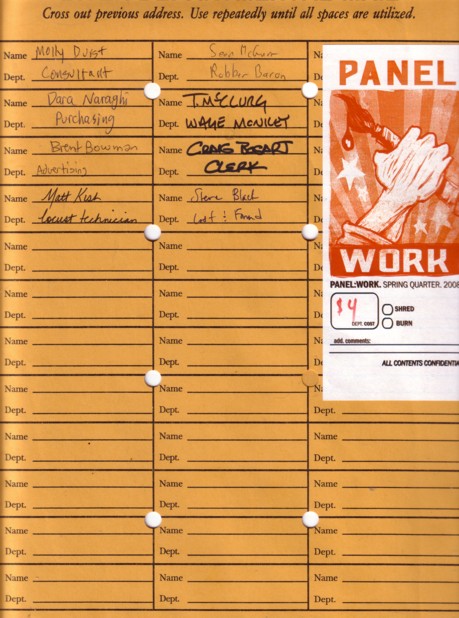 Cross out previous address. Use repeatedly until all spaces are utilized.
Name Molly Durst Name Sean McGurr Na
Dept. Consultant Dept. Robber Baron
Name Dara Naraghi Name T. McClurg Na
Dept. Purchasing Dept. Wage Monkey De
Name Brent Bowman Name Craig Bogart Na
Dept. Advertising Dept. Clerk De
Name Matt Kish Name Steve Black Na
Dept. locust technician Dept. Lost & Found De
Name Name Na
Dept. Dept. De
Name Name Na
Dept. Dept. De
Name Name Na
Dept. Dept. De
Name Name Na
Dept. Dept. Dept.
Name Name Name
Dept. Dept. Dept.
Name Name Name
Dept. Dept. Dept.
Name Name Name
Dept. Dept. Dept.
Name Name Name
Dept. Dept. Dept.
PANEL
WORK
PANEL:WORK. SPRING QUARTER. 2008
$4
DEPT. COST
SHRED
BURN
add. comments:
ALL CONTENTS CONFIDENTIA